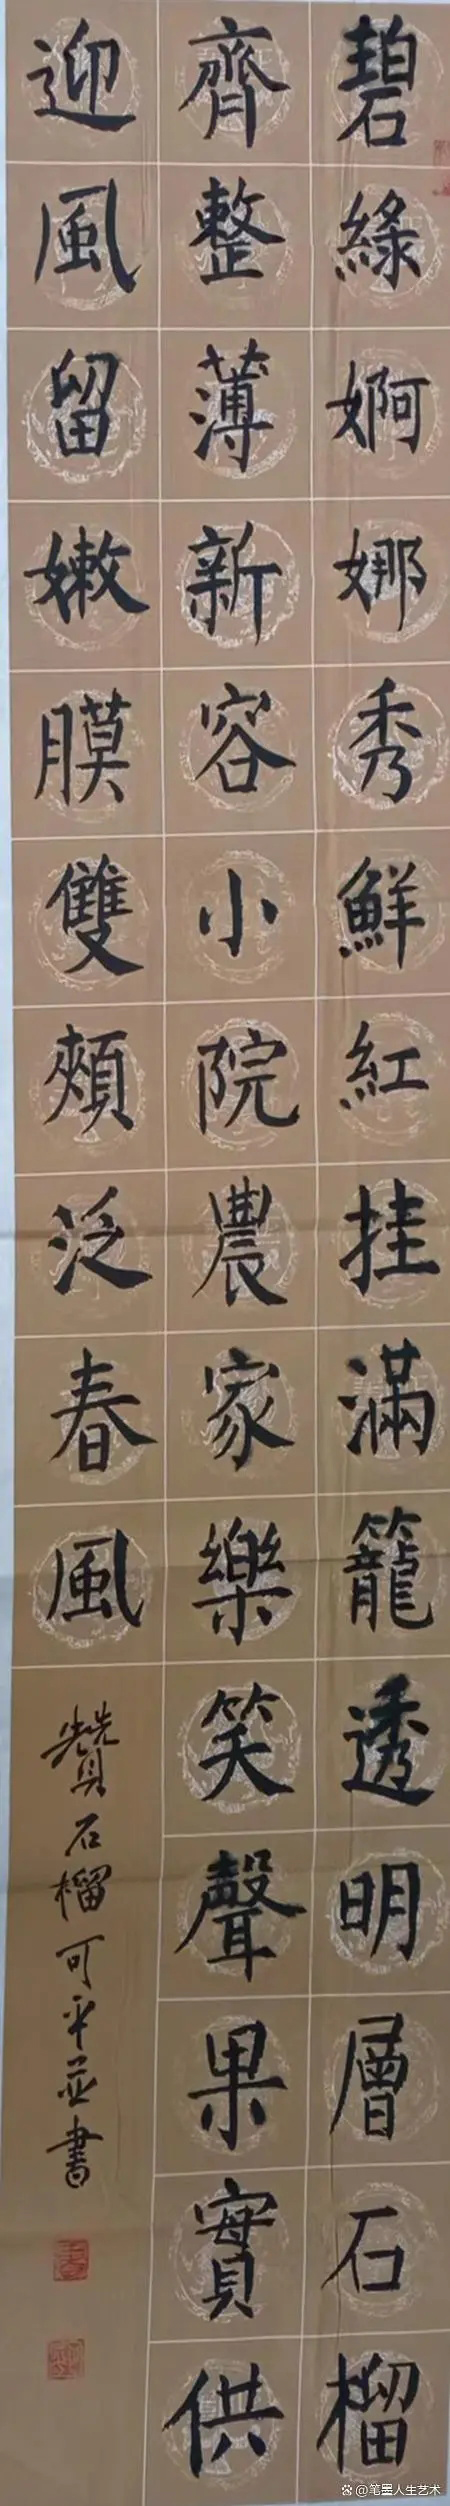 碧綠婀娜秀鮮紅挂滿籠透明層石榴
齊整薄新容小院農家樂笑聲果實供
迎風留嫩膜雙頰泛春風
贊石榴可平並書
@笔墨人生艺术